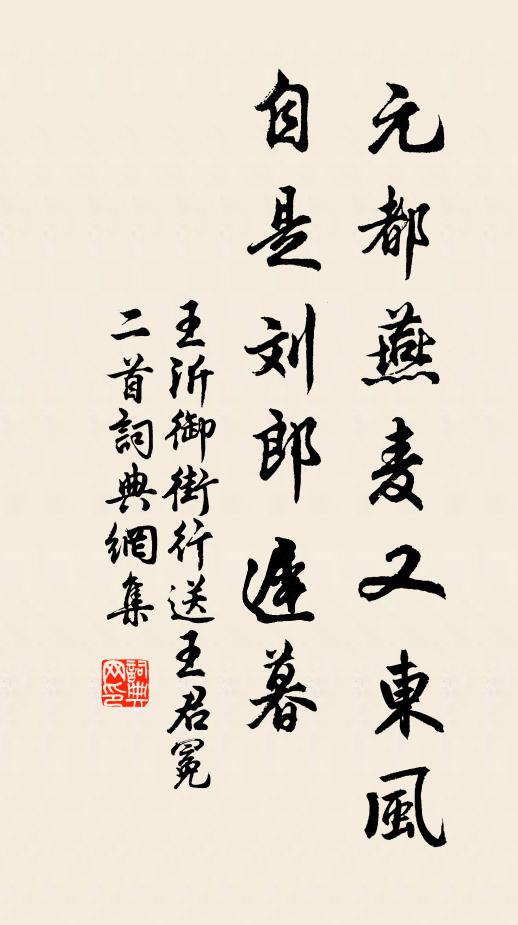 元都燕麦又東風
自是刘郎遲暮
王沂御街行送王君冕
二首詞典網集
詞典网印